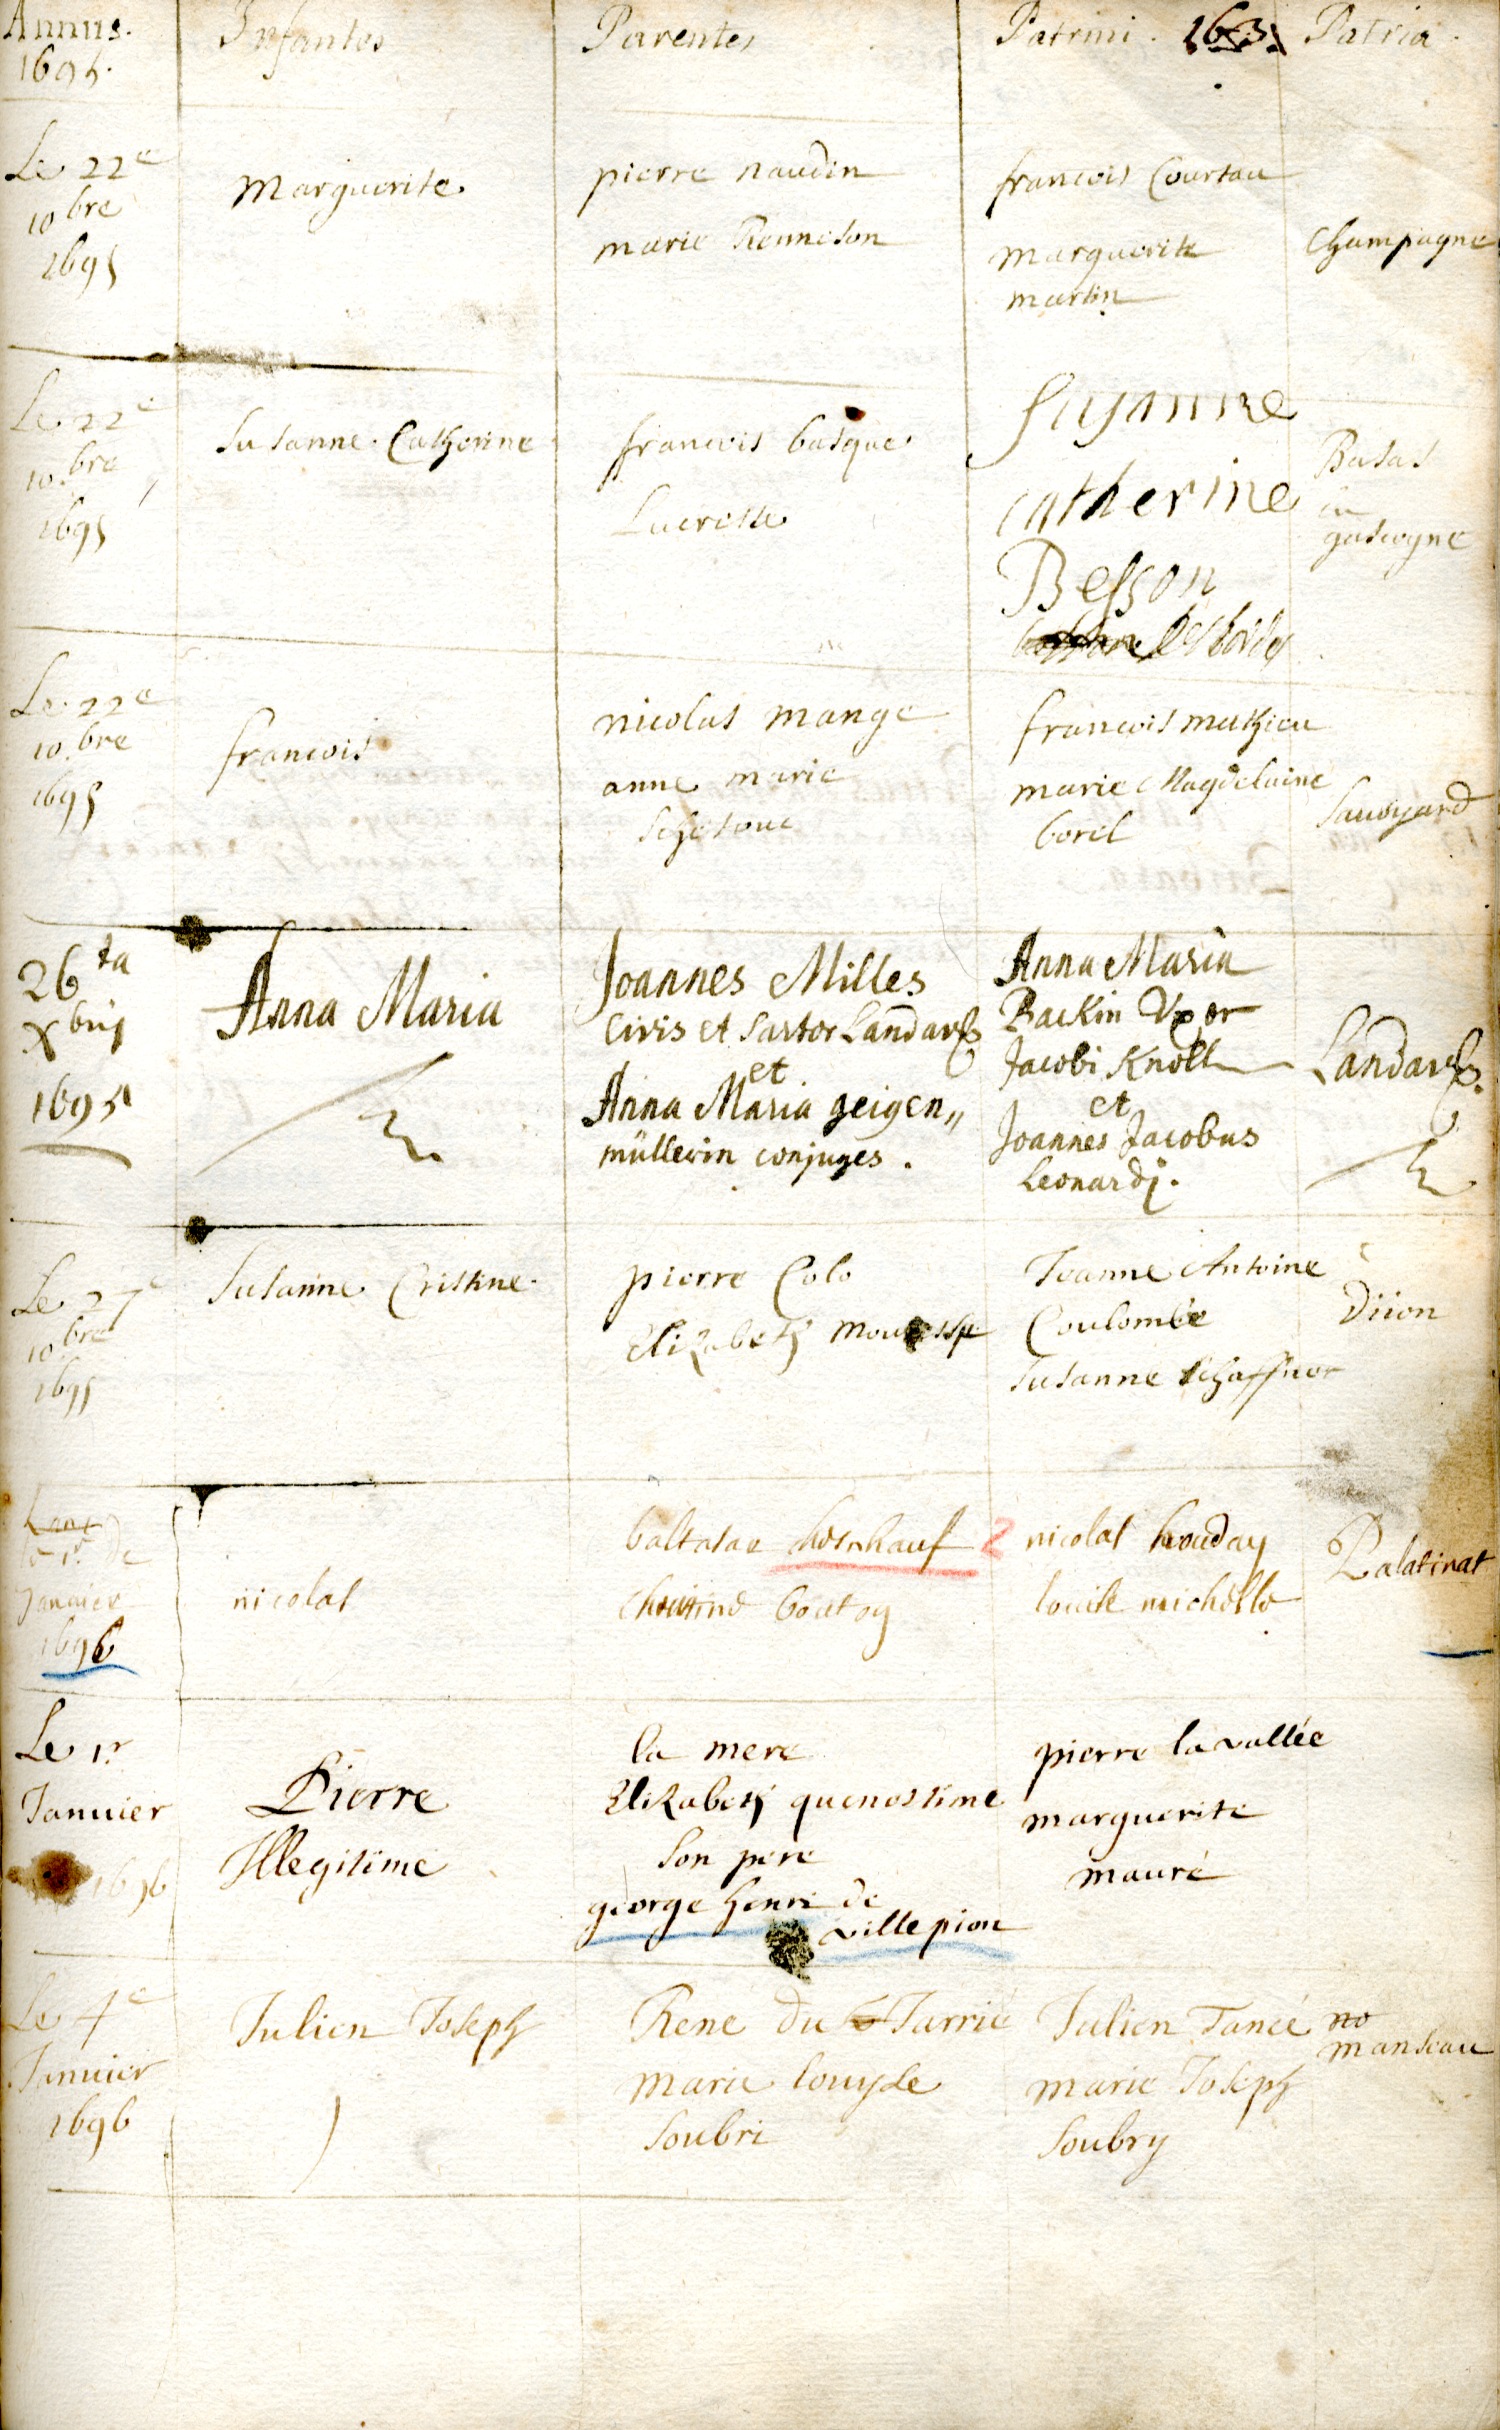 Annus.
1695.
Infantes
Parentes
Patrini.
Patria.
Le 22e
10bre
1695
Marguerite
pierre naudin
marie Renneson
francois Courtau
marguerite
martin
Champagne
Le 22e
10.bre
1695
Susanne. Catherine
francois basque
Lucresse
susanne
catherine
Besson
Basas
en
gascogne
Le 22e
10.bre
1695
francois
nicolas mange
anne marie
francois mathieu
marie Magdelaine
borel
Savoyard
26ta
Xbris
1695
Anna Maria
Joannes Milles
Civis et Sartor Landav:
et
Anna Maria geigen„
müllerin conjuges.
Anna Maria
Backin Uxor
Jacobi Knoll
et
Joannes Jacobus
Leonardi.
Landav:
Le 27e
10bre
1695
Susanne Cristine.
pierre Colo
Elizabeth
Jeanne Antoine
Coulombe
Susanne schaffner
Diion
le 1r de
Janvier
1696
nicolas
baltasar
2
nicolas houday
michelle
Palatinat
Le 1r
Januier
1696
Pierre
Illegitime
la mere
Elizabeth quenostime
son pere
george henri de
villepion
pierre lavallée
marguerite
mauré
Le 4e
Januier
1696
Julien Joseph
Rene du Jarrié
marie louyse
Soubri
Julien Tancé
marie Joseph
Soubry
no
manseau